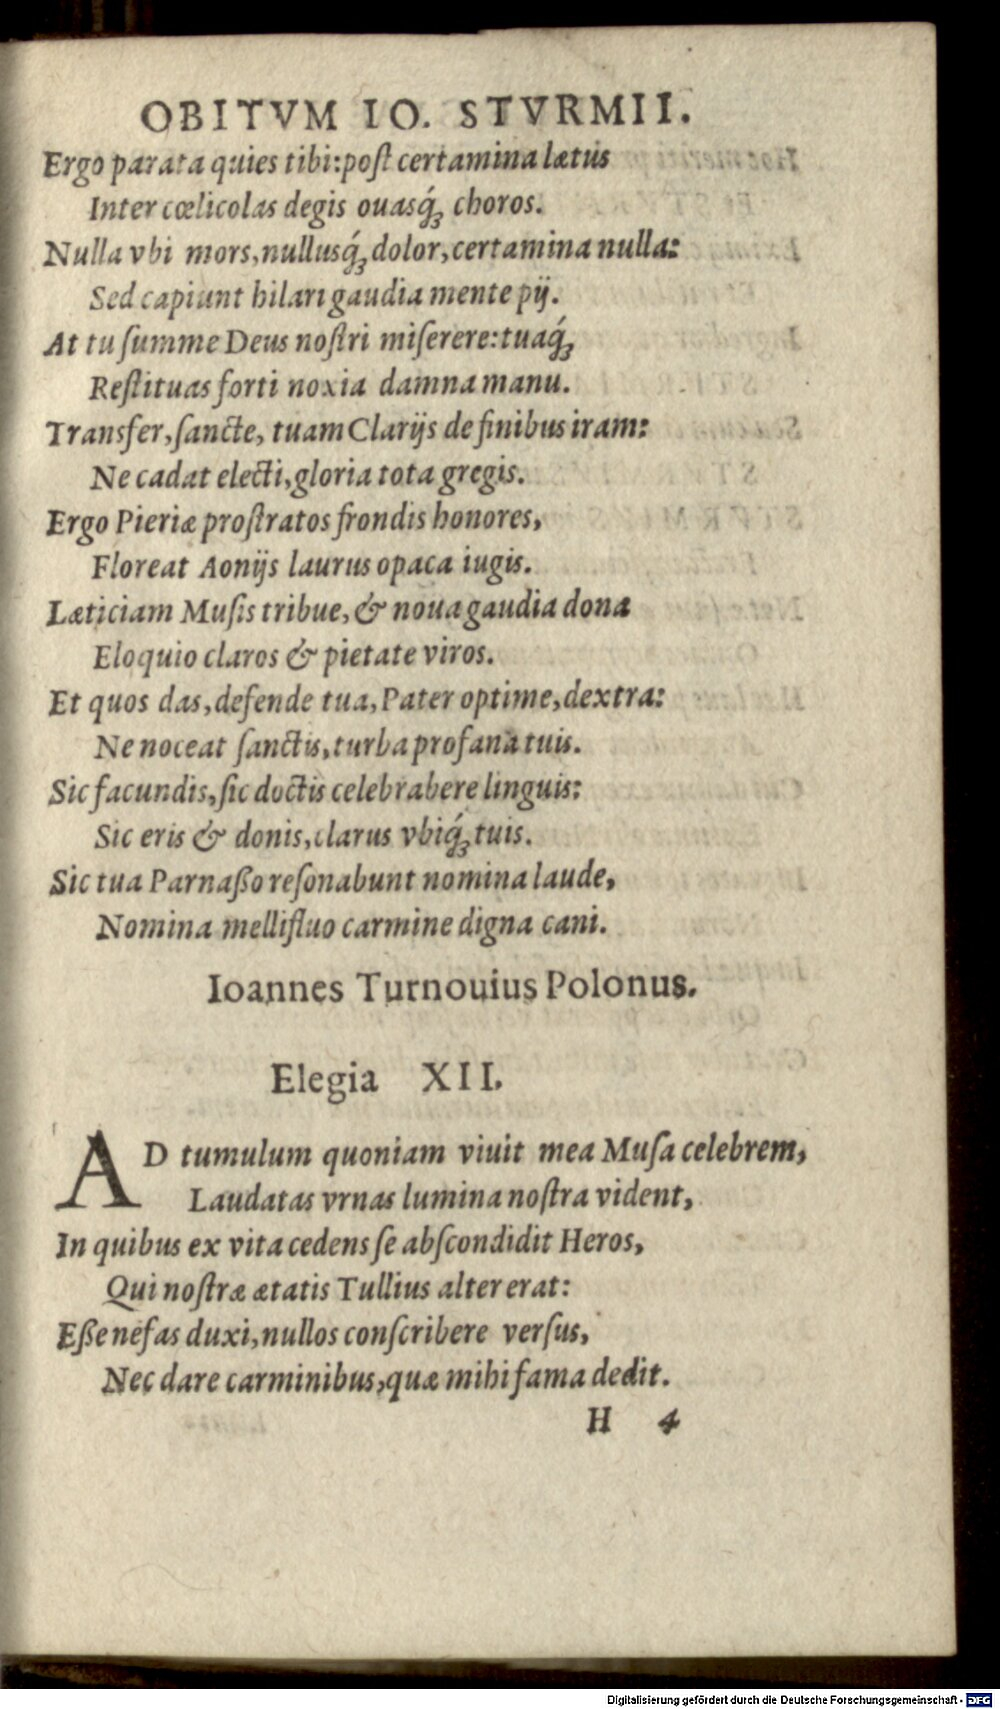 OBITVM IO. STVRMII.
Ergo parata quies tibi: post certamina lætus
Inter cœlicolas degis ouasq́ꝫ choros.
Nulla vbi mors, nullusq́ꝫ dolor, certamina nulla:
Sed capiunt hilari gaudia mente pij.
At tu summe Deus nostri miserere: tuaq́ꝫ
Restituas forti noxia damna manu.
Transfer, sancte, tuam Clarijs de finibus iram:
Ne cadat electi, gloria tota gregis.
Ergo Pieriæ prostratos frondis honores,
Floreat Aonijs laurus opaca iugis.
Læticiam Musis tribue, & noua gaudia dona
Eloquio claros & pietate viros.
Et quos das, defende tua, Pater optime, dextra:
Ne noceat sanctis, turba profana tuis.
Sic facundis, sic doctis celebrabere linguis:
Sic eris & donis, clarus vbiq́ꝫ tuis.
Sic tua Parnaßo resonabunt nomina laude,
Nomina mellifluo carmine digna cani.
Ioannes Turnouius Polonus.
Elegia XII.
AD tumulum quoniam viuit mea Musa celebrem,
Laudatas vrnas lumina nostra vident,
In quibus ex vita cedens se abscondidit Heros,
Qui nostræ ætatis Tullius alter erat:
Eße nefas duxi, nullos conscribere versus,
Nec dare carminibus, quæ mihi fama dedit.
H 4
Digitalisierung gefördert durch die Deutsche Forschungsgemeinschaft - DFG